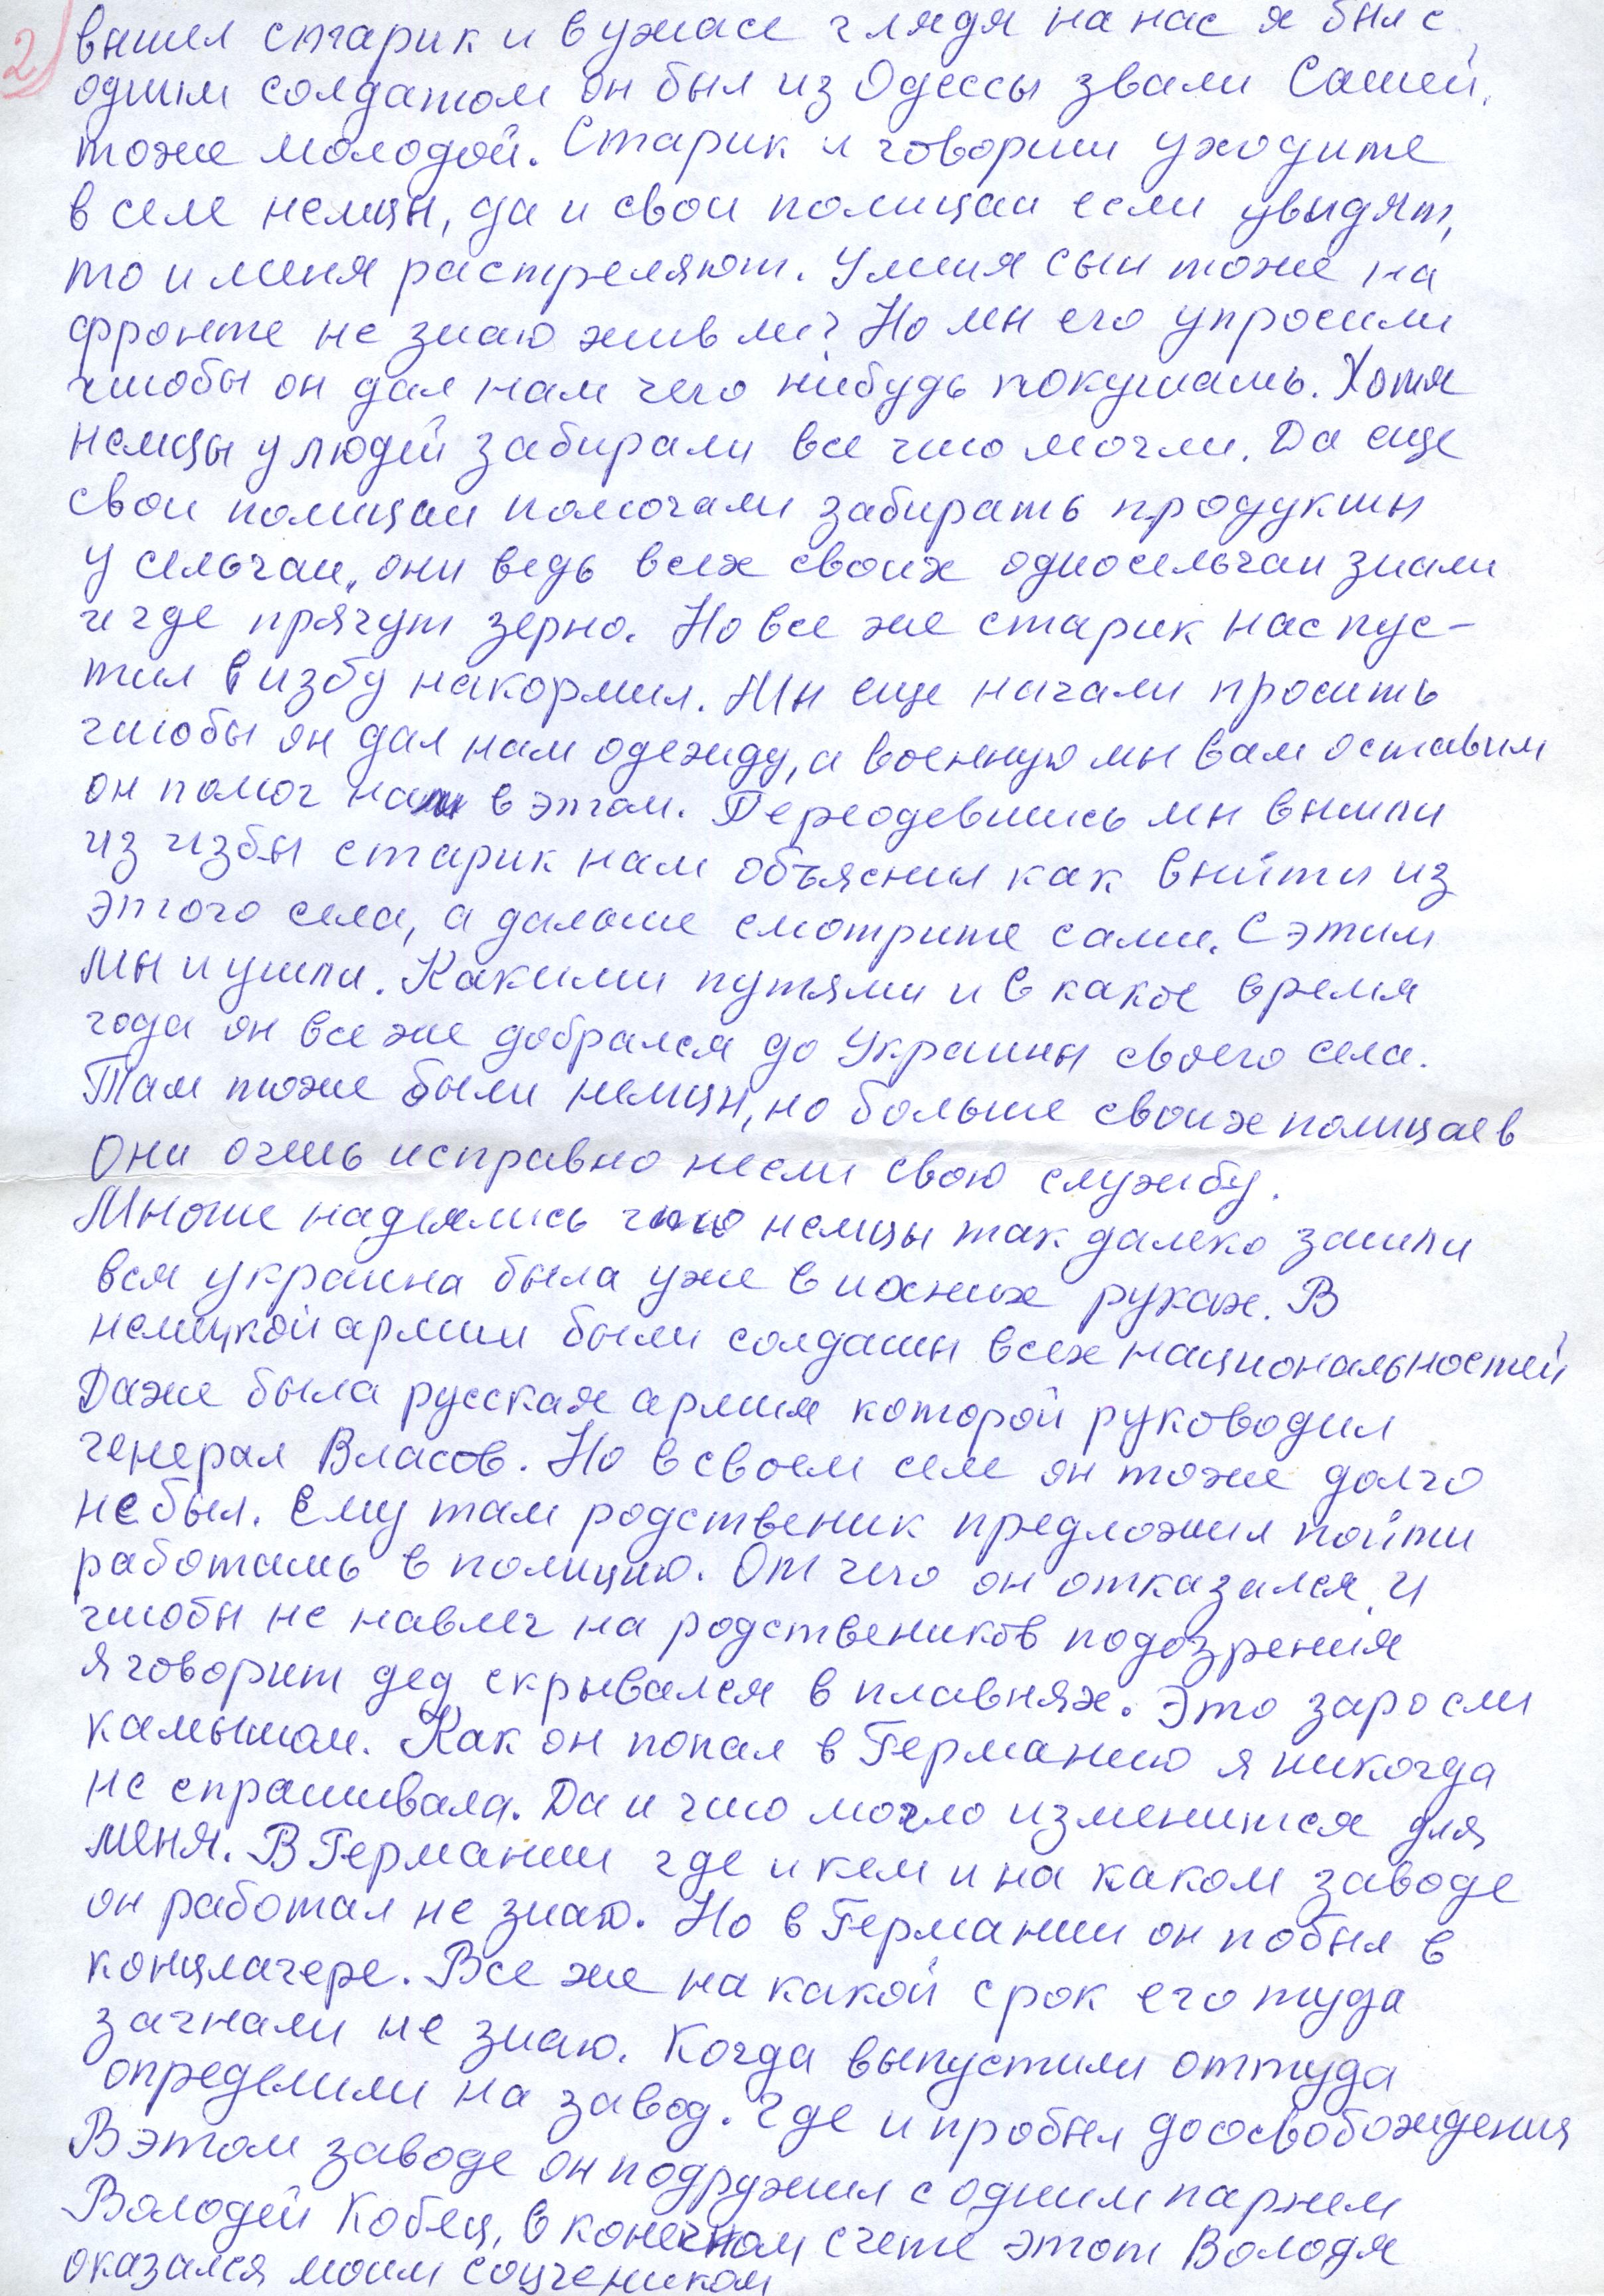 2)
вышел старик и в ужасе глядя на нас я был с
одним солдатом он был из Одессы звали Сашей,
тоже молодой. Старик и говорит уходите
в селе немцы, да и свои полицаи если увидят,
то и меня растреляют. У меня сын тоже на
фронте не знаю жив ли? Но мы его упросили
чтобы он дал нам чего нибудь покушать. Хотя
немцы у людей забирали все что могли. Да еще
свои полицаи помогали забирать продукты
у сельчан, они ведь всех своих односельчан знали
и где прячут зерно. Но все же старик нас пус-
тил в избу накормил. Мы еще начали просить
чтобы он дал нам одежду, а военную мы вам оставим
он помог нам в этом. Переодевшись мы вышли
из избы старик нам объяснил как выйти из
этого села, а дальше смотрите сами. С этим
мы и ушли. Какими путями и в какое время
года он все же добрался до Украины своего села.
Там тоже были немцы, но больше своих полицаев
Они очень исправно несли свою службу.
Многие надеялись что немцы так далеко зашли
вся украина была уже в ихних руках. В
немецкой армии были солдаты всех национальностей
Даже была русская армия которой руководил
генерал Власов. Но в своем селе он тоже долго
не был. Ему там родственик предложил пойти
работать в полицию. От чего он отказался. И
чтобы не навлеч на родствеников подозрения
я говорит дед скрывался в плавнях. Это заросли
камышом. Как он попал в Германию я никогда
не спрашивала. Да и что могло изменится для
меня. В Германии где и кем и на каком заводе
он работал не знаю. Но в Германии он побыл в
концлагере. Все же на какой срок его туда
загнали не знаю. Когда выпустили оттуда
определили на завод. Где и пробыл до освобождения
В этом заводе он подружил с одним парнем
Володей Кобец, в конечном счете этот Володя
оказался моим соучеником